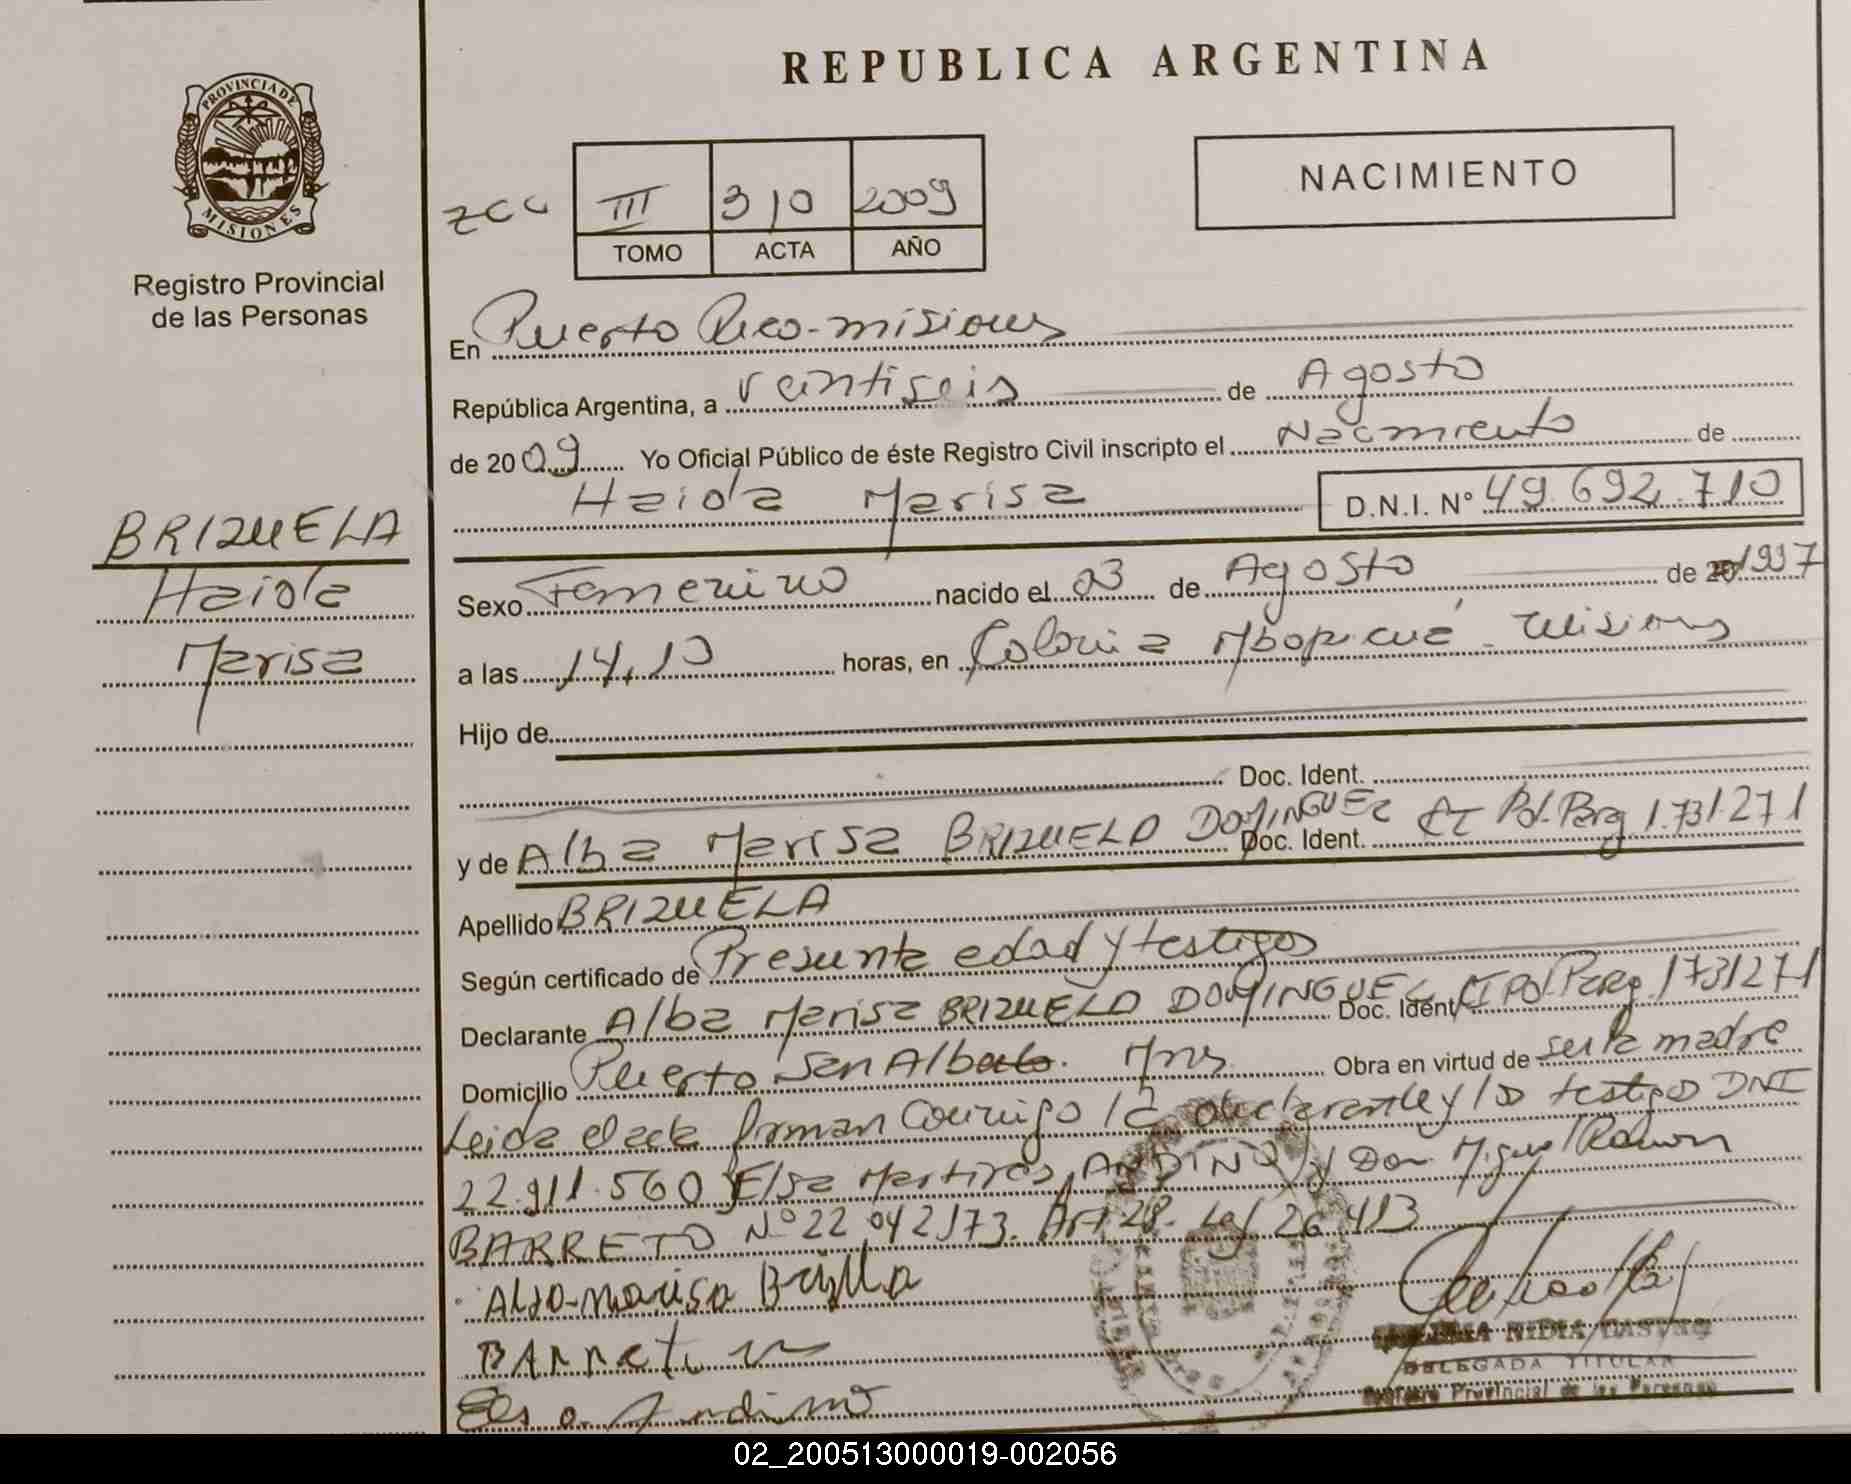 REPUBLICA ARGENTINA
PROVINCIA DE MISIONES
Registro Provincial
de las Personas
NACIMIENTO
III 310 2009
TOMO ACTA AÑO
En Puerto Rico-misiones
República Argentina, a veintiseis de Agosto
de 2009 Yo Oficial Público de éste Registro Civil inscripto el Nacimiento de
Haida Marisa D.N.I. Nº 49.692.710
BRIZUELA
Haida
Marisa
Sexo Femenino nacido el 03 de Agosto de 20 1997
a las 14,10 horas, en Colonia Mbopicuá - Misiones
Hijo de
Doc. Ident.
y de Alba Marisa BRIZUELA DOMINGUEZ Doc. Ident. CI Pol. Parg 1.731.271
Apellido BRIZUELA
Según certificado de Presunta edad y testigos
Declarante Alba Marisa BRIZUELA DOMINGUEZ Doc. Ident. CI Pol. Parg. 1731271
Domicilio Puerto San Alberto. Mns Obra en virtud de ser la madre
Leida el acta firman conmigo la declarante y los testigos DNI
22.911.560 Elsa Martires ANDINO y Don Miguel Ramon
BARRETO Nº 22.042173. Art 28. Ley 26.413
BARRETO
Elsa Andino
NIDIA CASTRO
DELEGADA TITULAR
Registro Provincial de las Personas
02_200513000019-002056